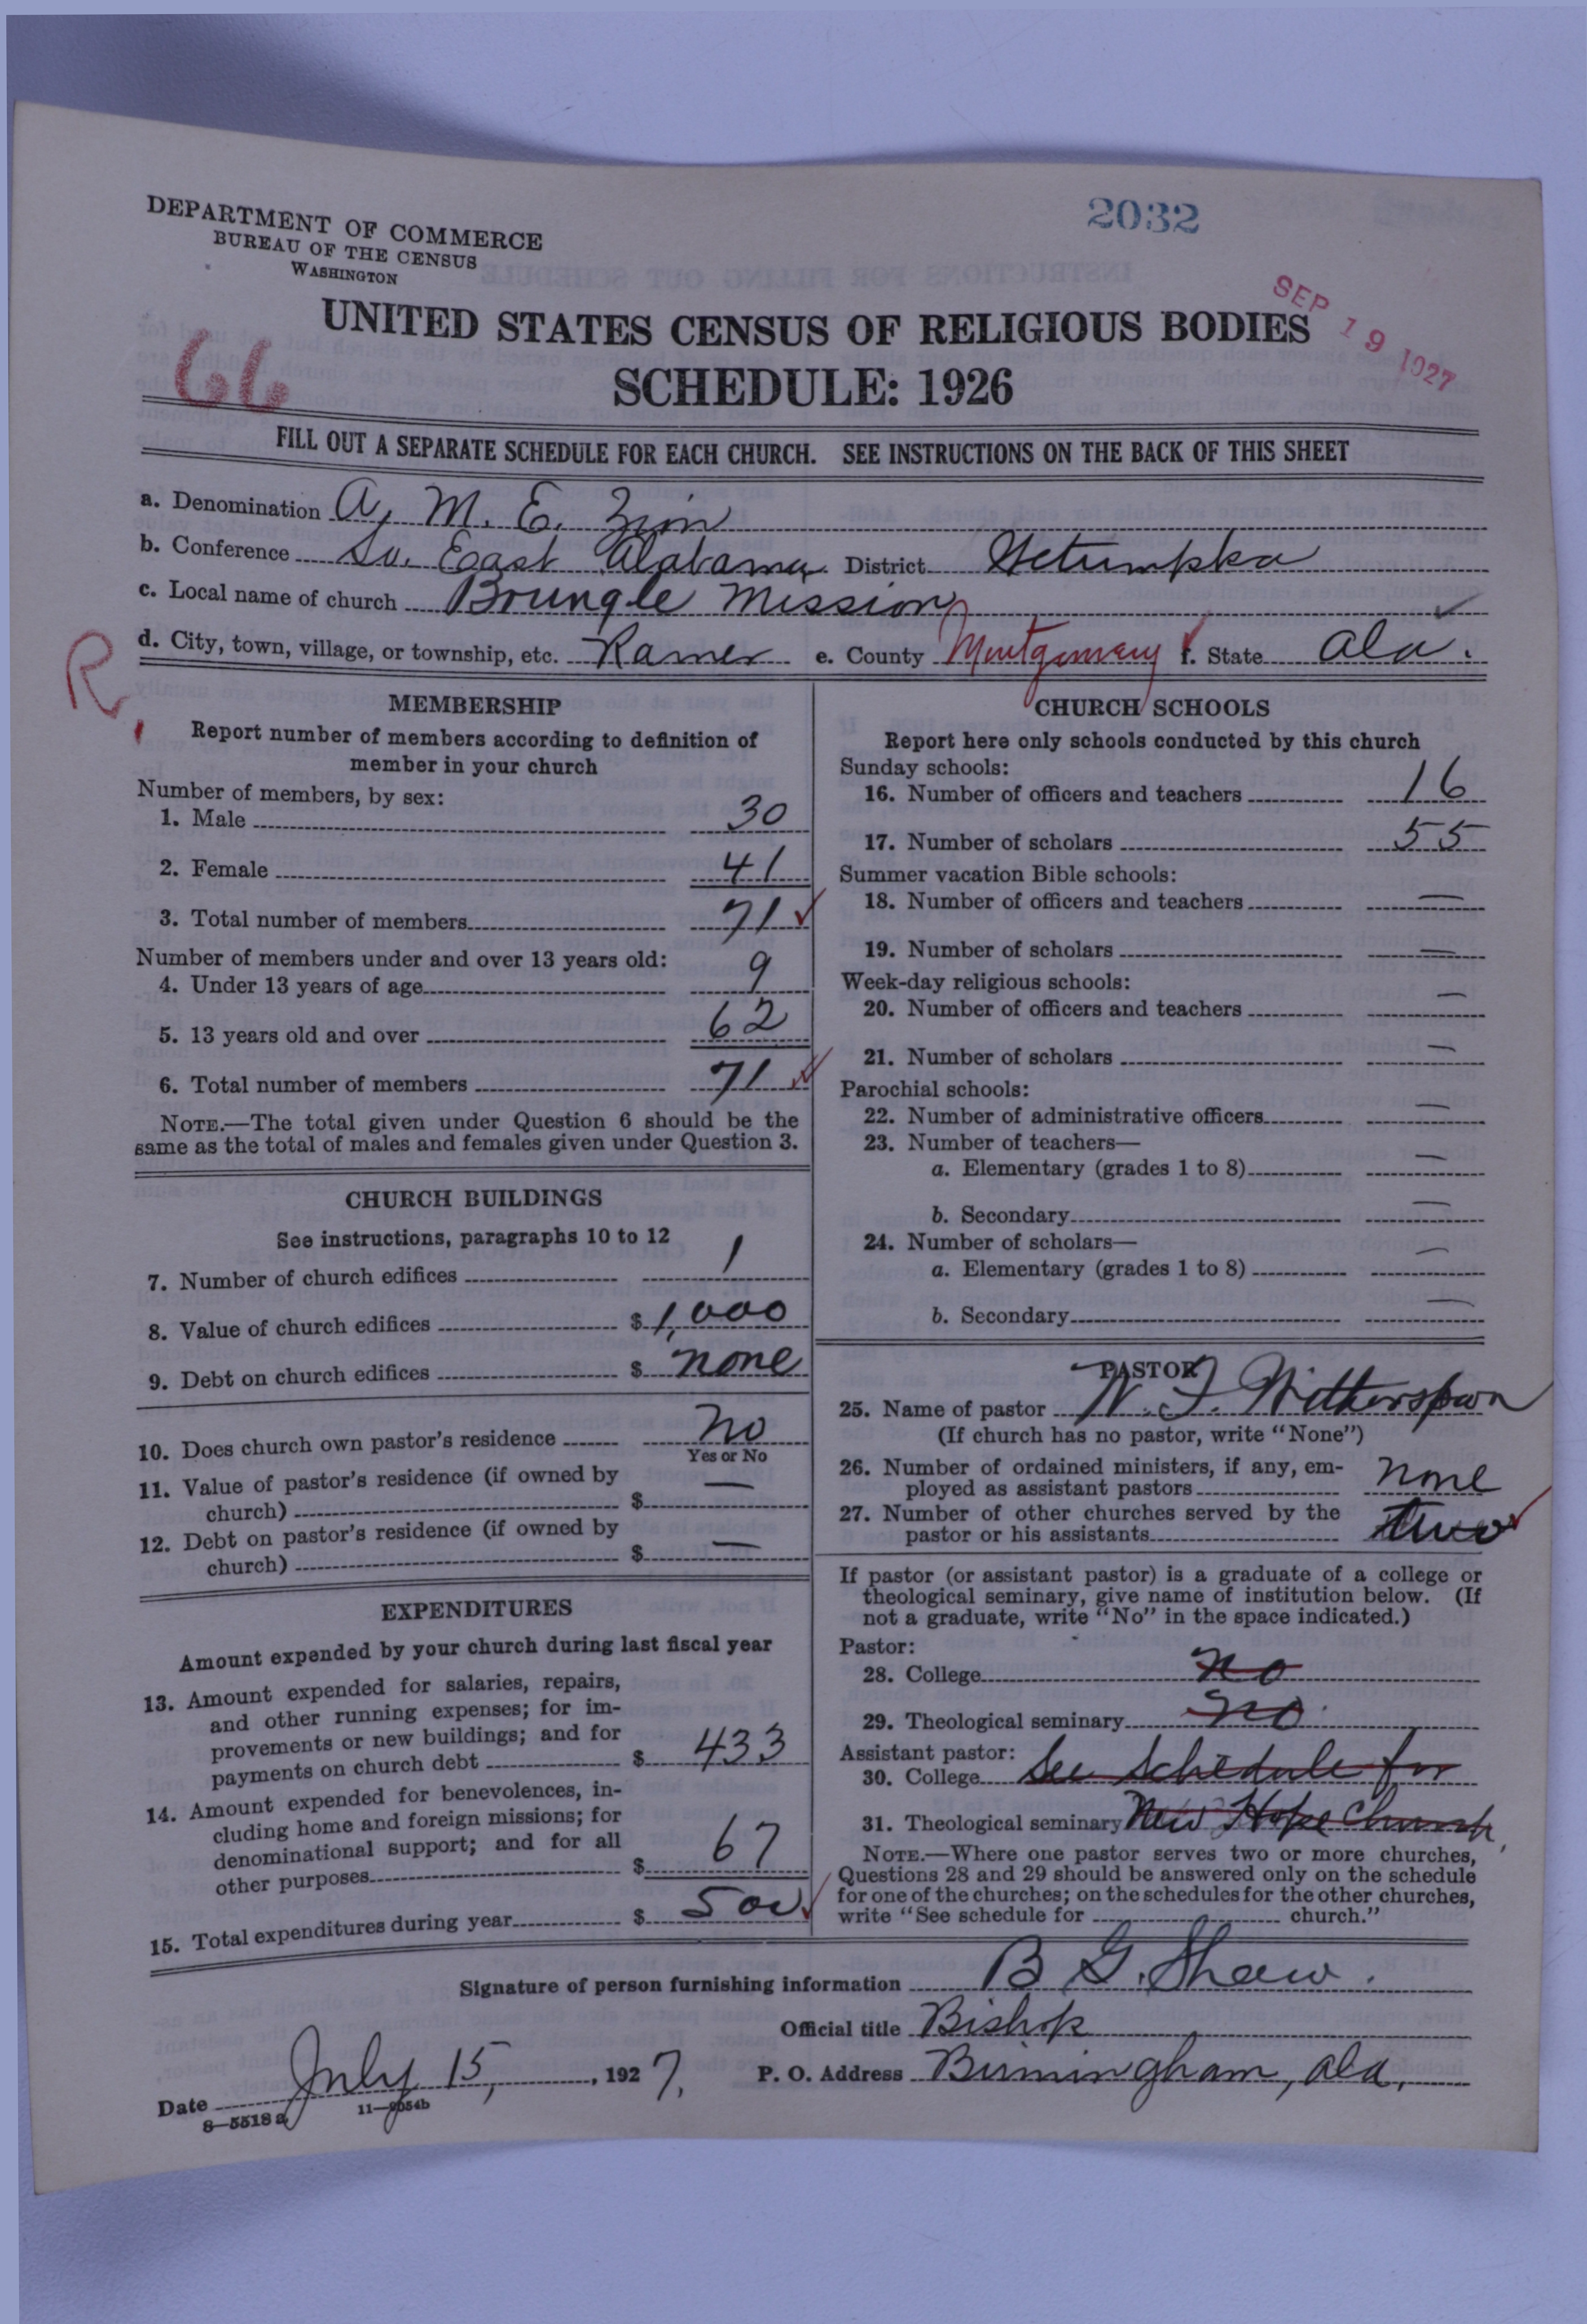 DEPARTMENT OF COMMERCE
BUREAU OF THE CENSUS
WASHINGTON
2032
SEP 19 1927
UNITED STATES CENSUS OF RELIGIOUS BODIES
SCHEDULE: 1926
66
FILL OUT A SEPARATE SCHEDULE FOR EACH CHURCH. SEE INSTRUCTIONS ON THE BACK OF THIS SHEET
a. Denomination A. M. E. Zion
b. Conference So. East Alabama District Wetumpka
c. Local name of church Brungle Mission
d. City, town, village, or township, etc. Ramer e. County Montgomery f. State Ala.
R.
MEMBERSHIP
Report number of members according to definition of
member in your church
Number of members, by sex:
1. Male 30
2. Female 41
3. Total number of members 71
Number of members under and over 13 years old:
4. Under 13 years of age 9
5. 13 years old and over 62
6. Total number of members 71
NOTE.—The total given under Question 6 should be the
same as the total of males and females given under Question 3.
CHURCH BUILDINGS
See instructions, paragraphs 10 to 12
7. Number of church edifices 1
8. Value of church edifices $ 1,000
9. Debt on church edifices $ none
10. Does church own pastor's residence no
Yes or No
11. Value of pastor's residence (if owned by
church) $ —
12. Debt on pastor's residence (if owned by
church) $ —
EXPENDITURES
Amount expended by your church during last fiscal year
13. Amount expended for salaries, repairs,
and other running expenses; for im-
provements or new buildings; and for
payments on church debt $ 433
14. Amount expended for benevolences, in-
cluding home and foreign missions; for
denominational support; and for all
other purposes $ 67
15. Total expenditures during year $ 500
CHURCH SCHOOLS
Report here only schools conducted by this church
Sunday schools:
16. Number of officers and teachers 16
17. Number of scholars 55
Summer vacation Bible schools:
18. Number of officers and teachers —
19. Number of scholars —
Week-day religious schools:
20. Number of officers and teachers —
21. Number of scholars —
Parochial schools:
22. Number of administrative officers —
23. Number of teachers—
a. Elementary (grades 1 to 8) —
b. Secondary —
24. Number of scholars—
a. Elementary (grades 1 to 8) —
b. Secondary —
PASTOR
25. Name of pastor N. T. Witherspoon
(If church has no pastor, write "None")
26. Number of ordained ministers, if any, em-
ployed as assistant pastors none
27. Number of other churches served by the
pastor or his assistants two
If pastor (or assistant pastor) is a graduate of a college or
theological seminary, give name of institution below. (If
not a graduate, write "No" in the space indicated.)
Pastor:
28. College no
29. Theological seminary no
Assistant pastor:
30. College See Schedule for
31. Theological seminary New Hope Church,
NOTE.—Where one pastor serves two or more churches,
Questions 28 and 29 should be answered only on the schedule
for one of the churches; on the schedules for the other churches,
write "See schedule for church."
Signature of person furnishing information B G. Shaw.
Official title Bishop
Date July 15, 1927. P. O. Address Birmingham, Ala.
8—5518a 11—9054b